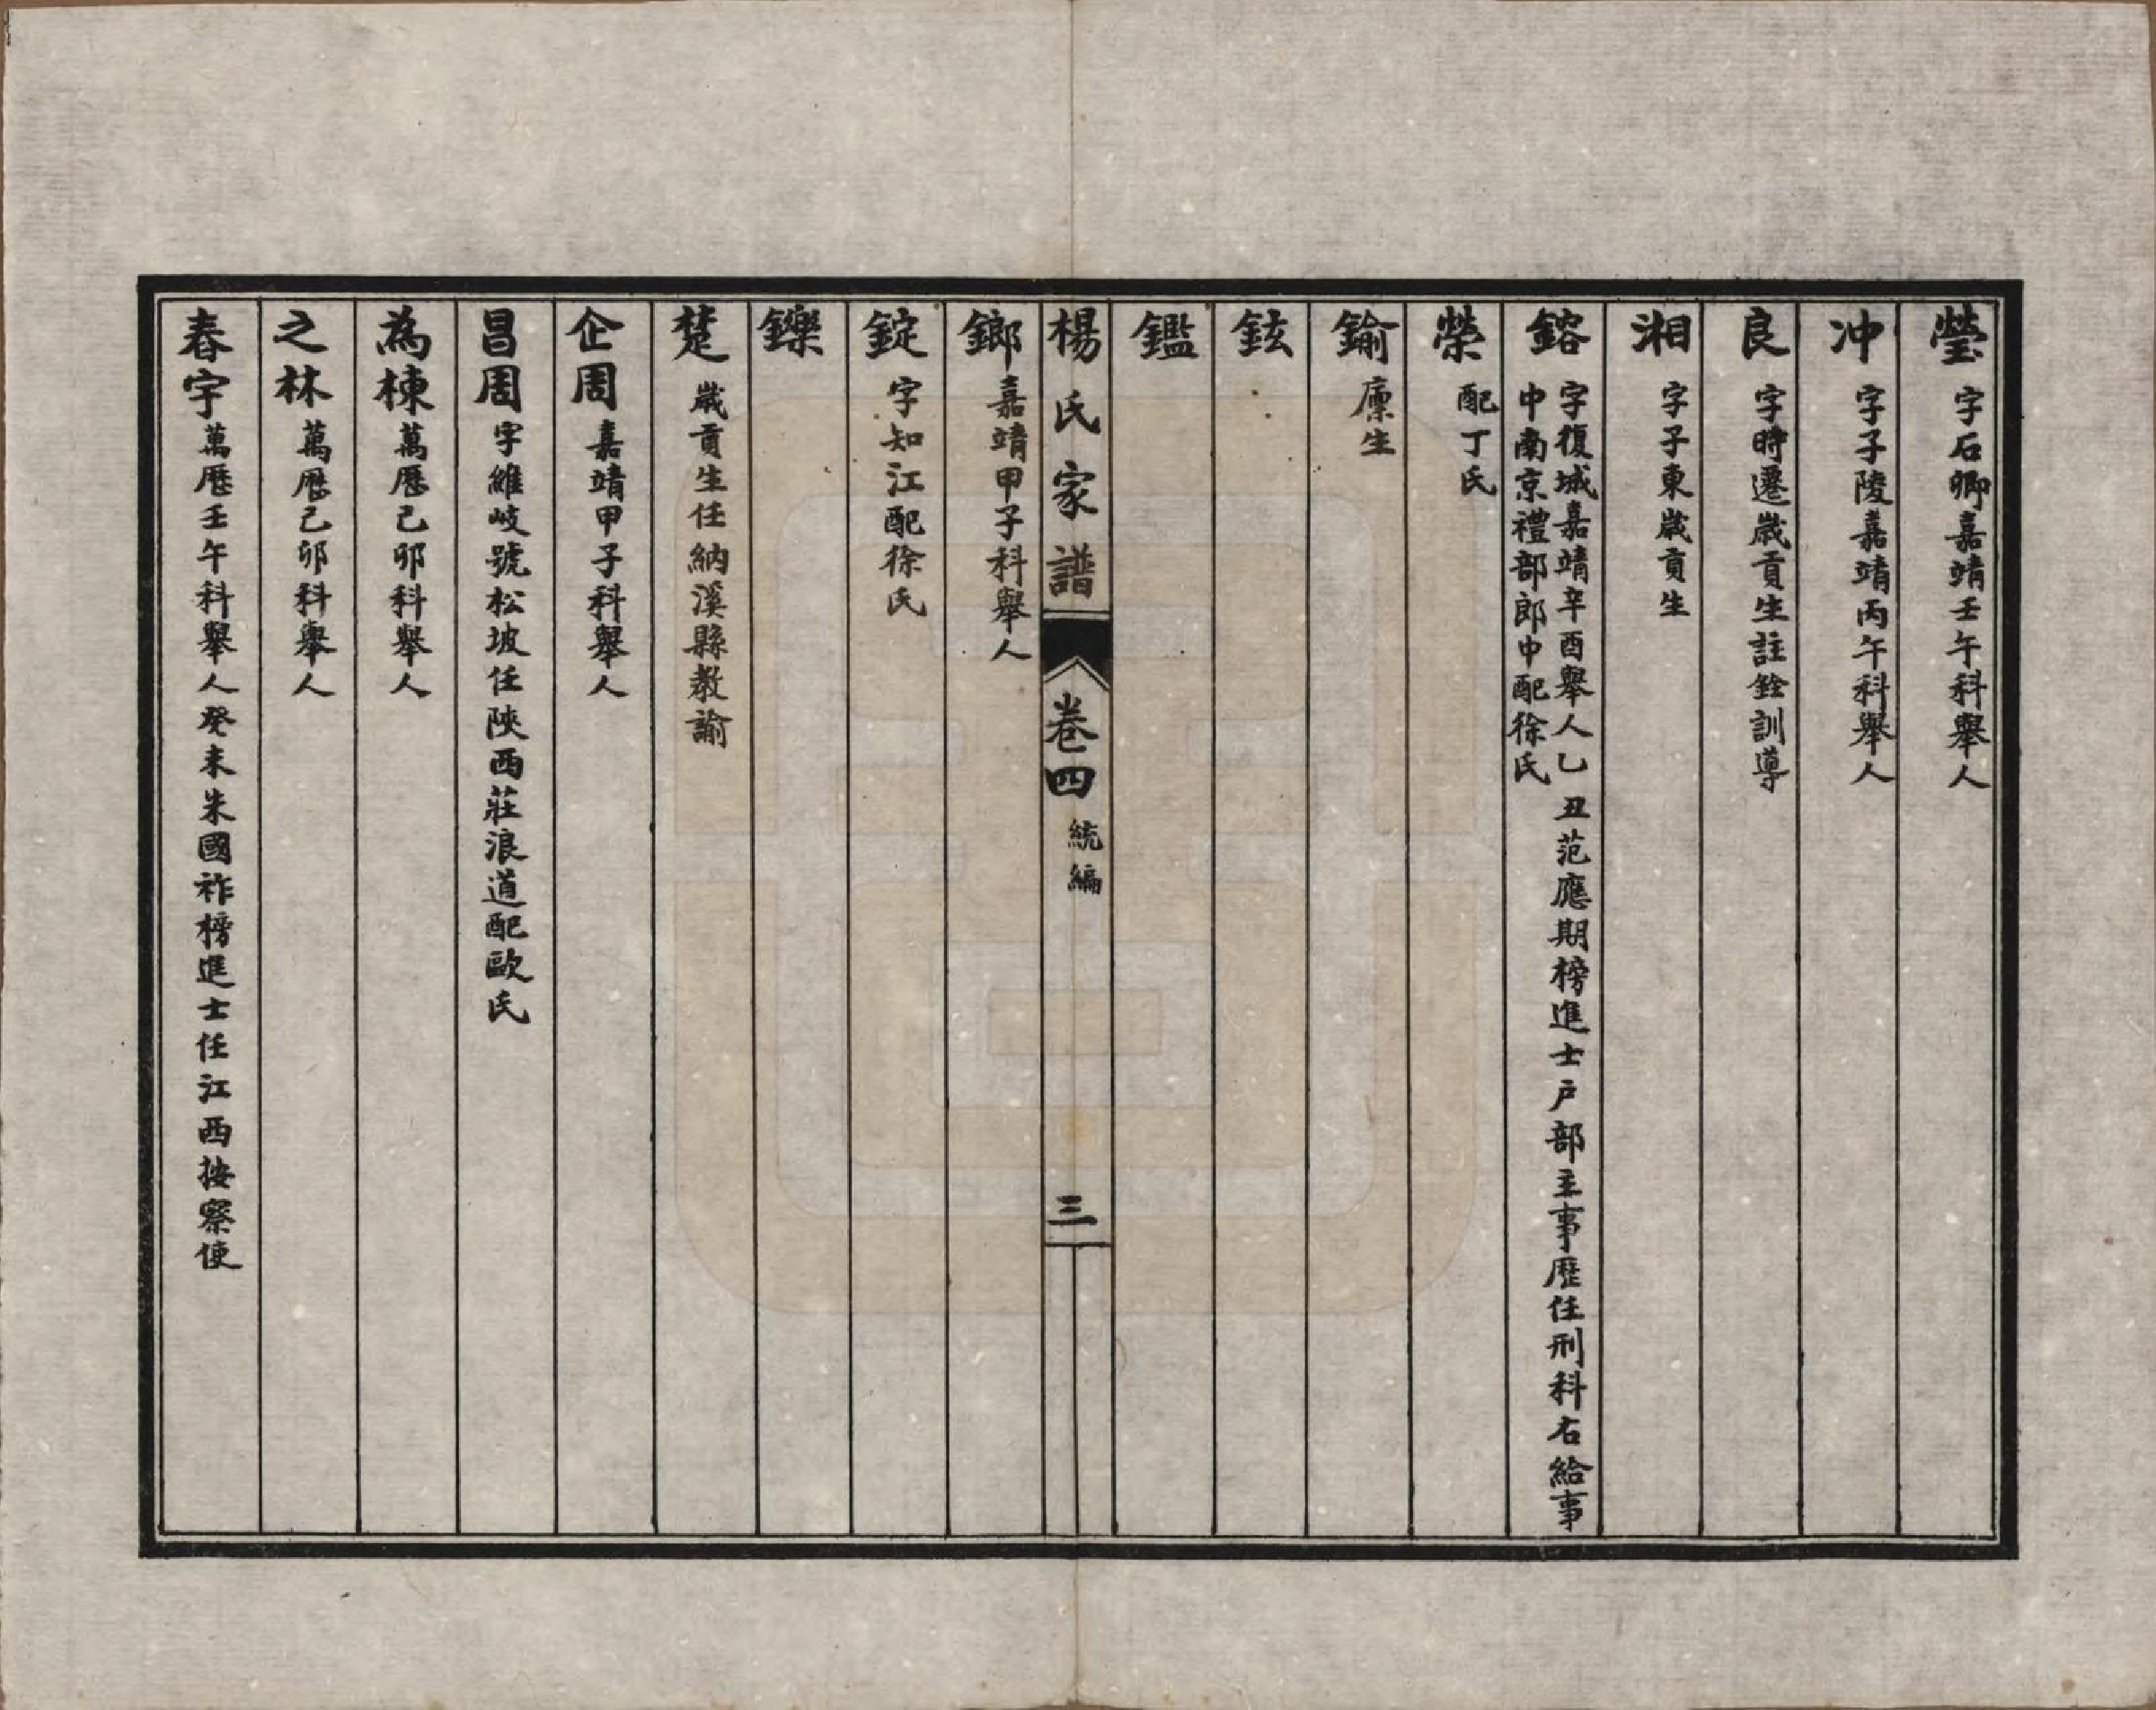 瑩 字石卿嘉靖壬午科舉人
冲 字子陵嘉靖丙午科舉人
良 字時遷歲貢生註銓訓導
湘 字子東歲貢生
鎔 字復城嘉靖辛酉舉人乙丑范應期榜進士户部主事歷任刑科右給事
中南京禮部郎中配徐氏
榮 配丁氏
鍮 廪生
鉉
鑑
楊氏家譜 卷四 統編 三
鎯 嘉靖甲子科舉人
錠 字知江配徐氏
鑠
楚 歲貢生任納溪縣教諭
企周 嘉靖甲子科舉人
昌周 字維岐號松坡任陝西莊浪道配歐氏
為棟 萬歷己卯科舉人
之林 萬歷己卯科舉人
春宇 萬歷壬午科舉人癸未朱國祚榜進士任江西按察使